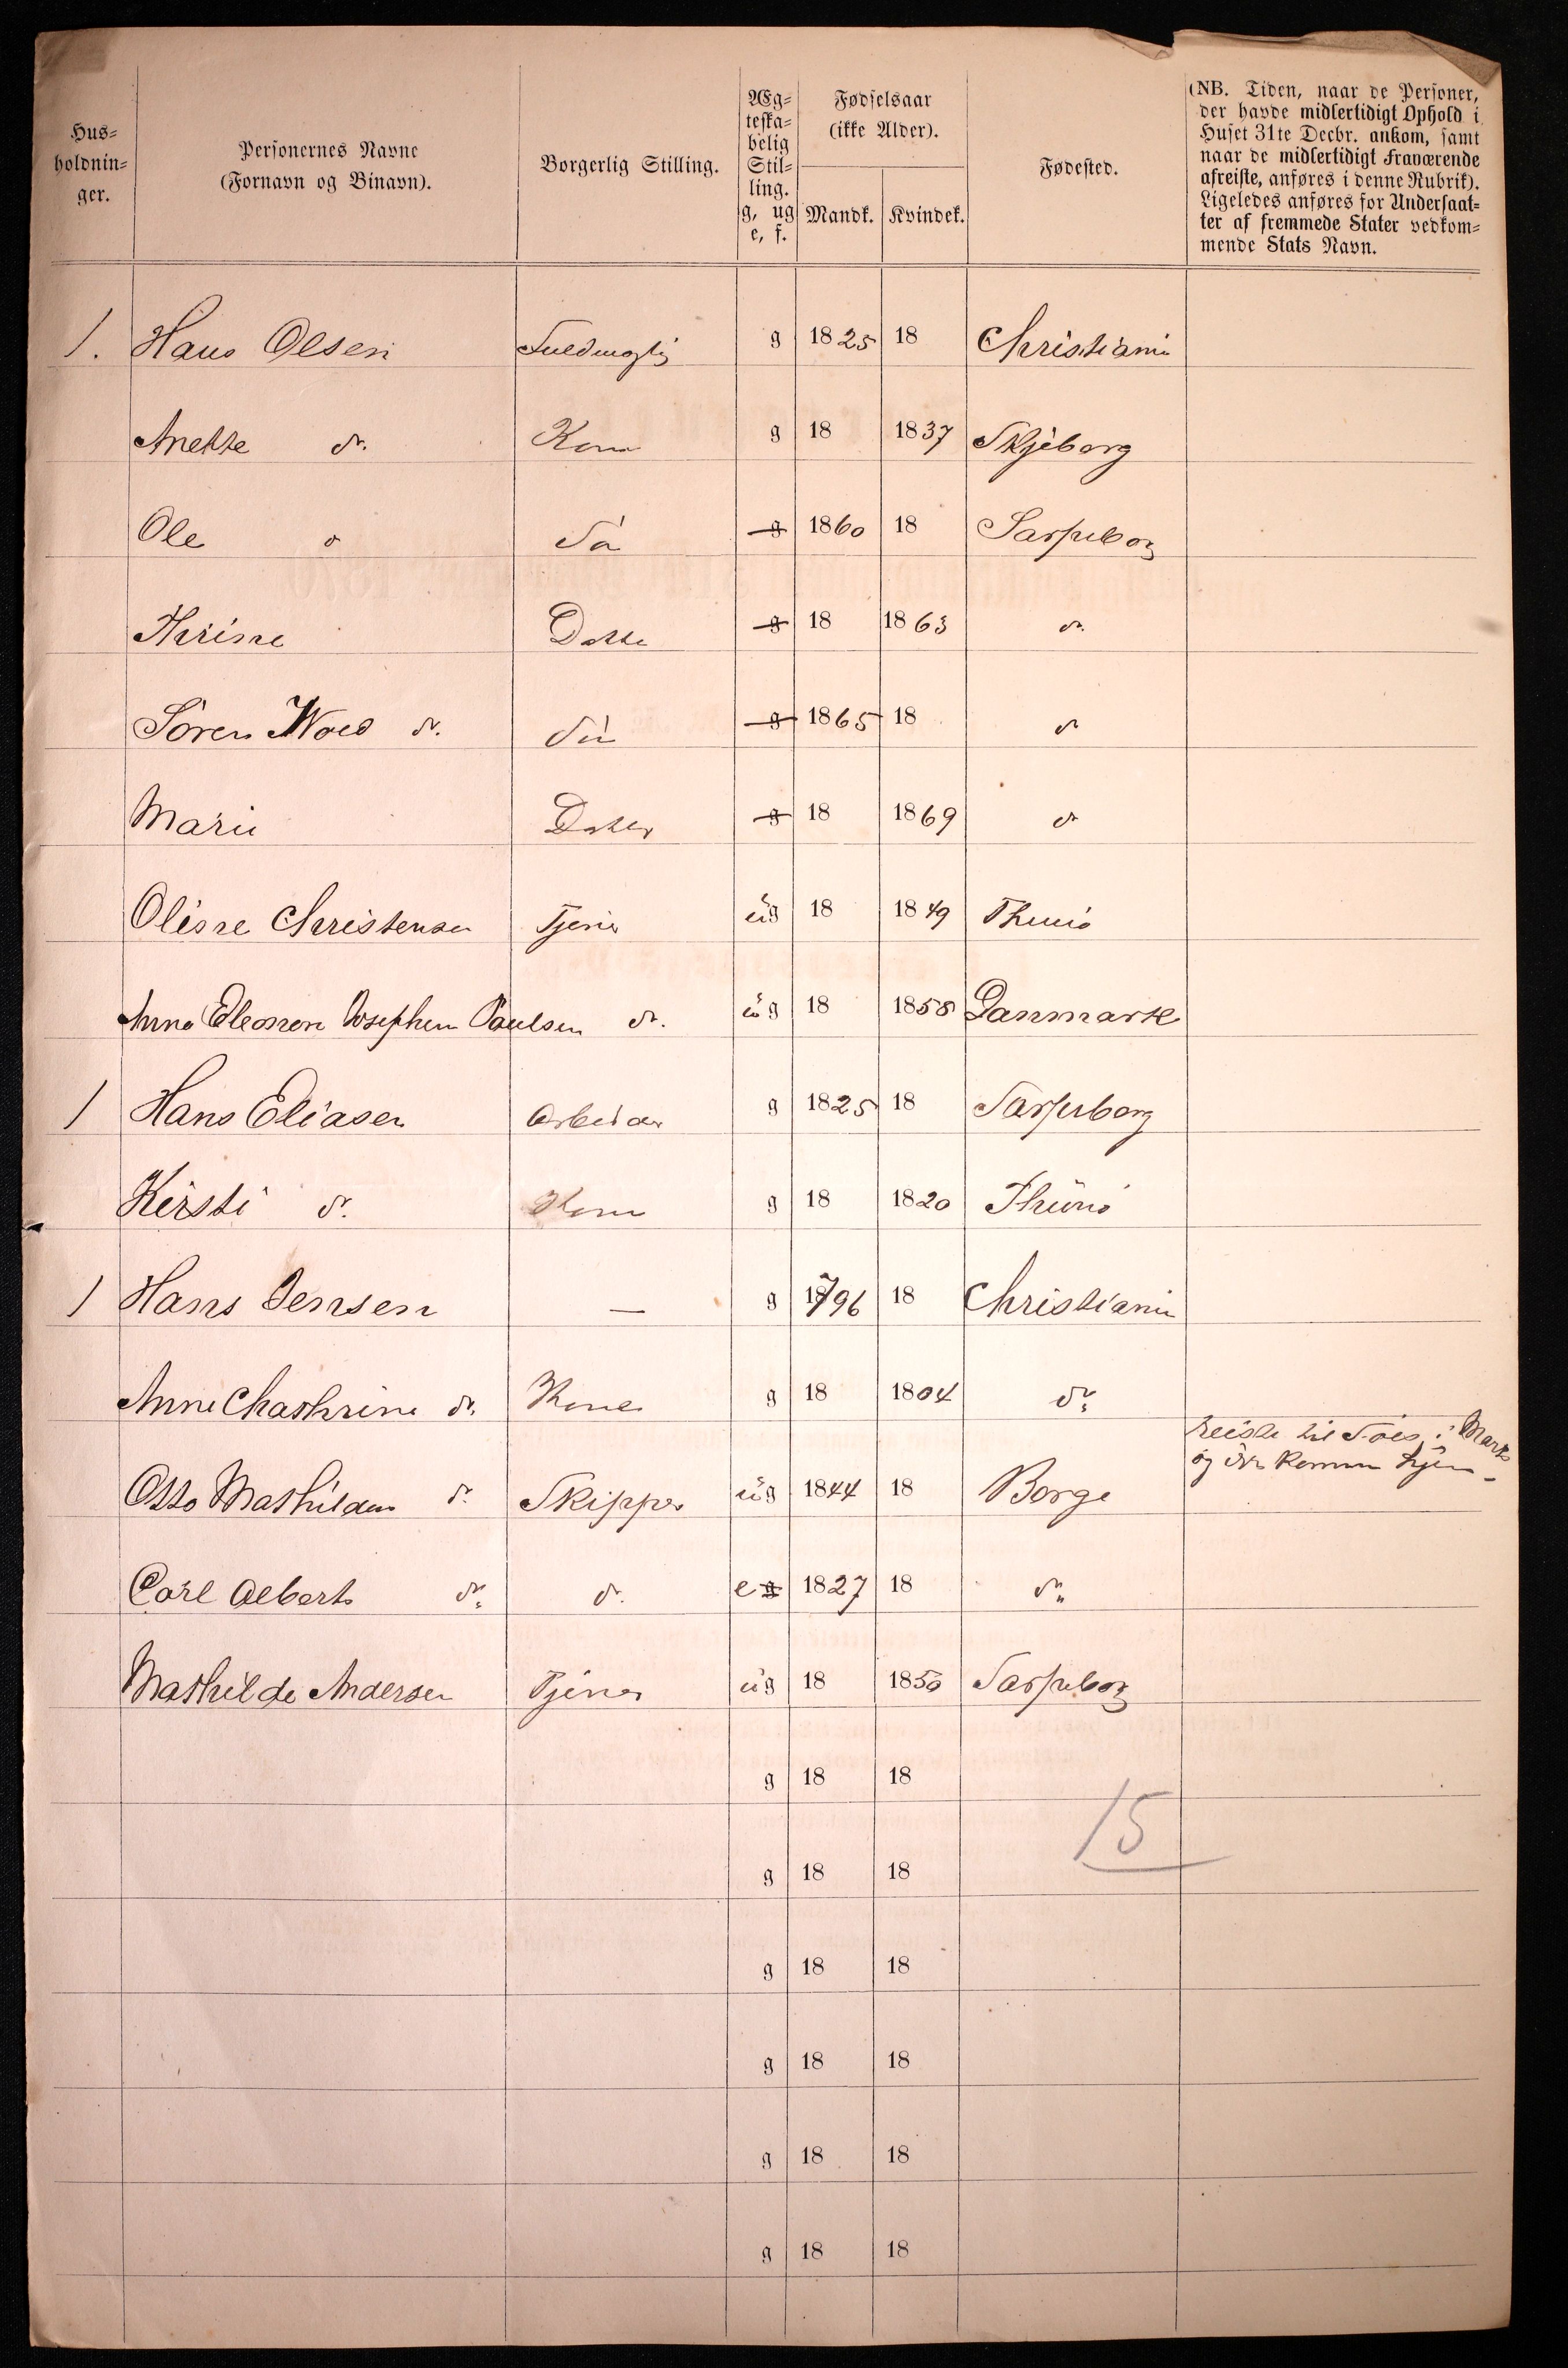 Hus=
holdnin=
ger.
Personernes Navne
(Fornavn og Binavn).
Borgerlig Stilling.
Æg=
teska=
belig
Stil=
ling.
g, ug
e, f.
Fødselsaar
(ikke Alder).
Mandk. Kvindek.
Fødested.
(NB. Tiden, naar de Personer,
der havde midlertidigt Ophold i
Huset 31te Decbr. ankom, samt
naar de midlertidigt Fraværende
afreiste, anføres i denne Rubrik).
Ligeledes anføres for Undersaat=
ter af fremmede Stater vedkom=
mende Stats Navn.
1. Hans Olsen g 1825 18 Christiania
Anette do. Kone g 18 1837 Skjeberg
Ole do Søn g 1860 18 Sarpsborg
Datter g 18 1863 do.
Søren do. Søn g 1865 18 do
Marie Datter g 18 1869 do
Olise Christensen Tjener ug 18 1849 Thunø
Anna Eleonora Josephine Paulsen do. ug 18 1858 Danmark
1 Hans Eliasen Arbeider g 1825 18 Sarpsborg
Kirsti do. Kone g 18 1820 Thunø
1 Hans Jensen — g 1796 18 Christiania
Anne Chathrine do. Kone g 18 1804 do.
reiste til Søes i Marts
og kommen hjem -
Otto Mathilden do. Skipper ug 1844 18 Borge
Carl Albert do. do. e g 1827 18 do.
Mathilde Andersen Tjener ug 18 1850 Sarpsborg
g 18 18
15
g 18 18
g 18 18
g 18 18
g 18 18
g 18 18